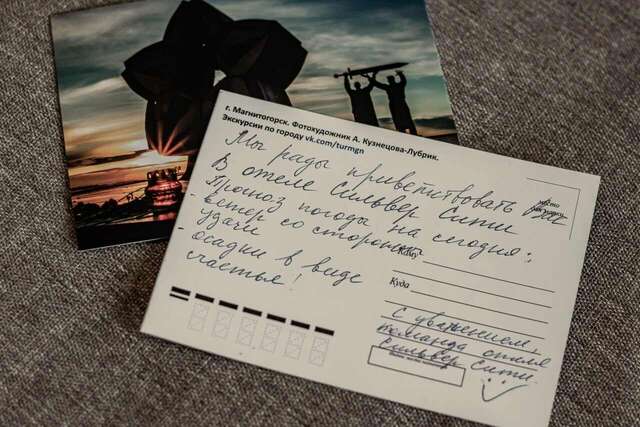 г. Магнитогорск. Фотохудожник А. Кузнецова-Лубрик.
Экскурсии по городу vk.com/turmgn
Мы рады приветствовать Вас
В отеле Сильвер Сити
Прогноз погоды на сегодня:
- ветер со стороны
удачи
- осадки в виде
счастья!
место
Кому
Куда
С уважением,
команда отеля
Сильвер Сити